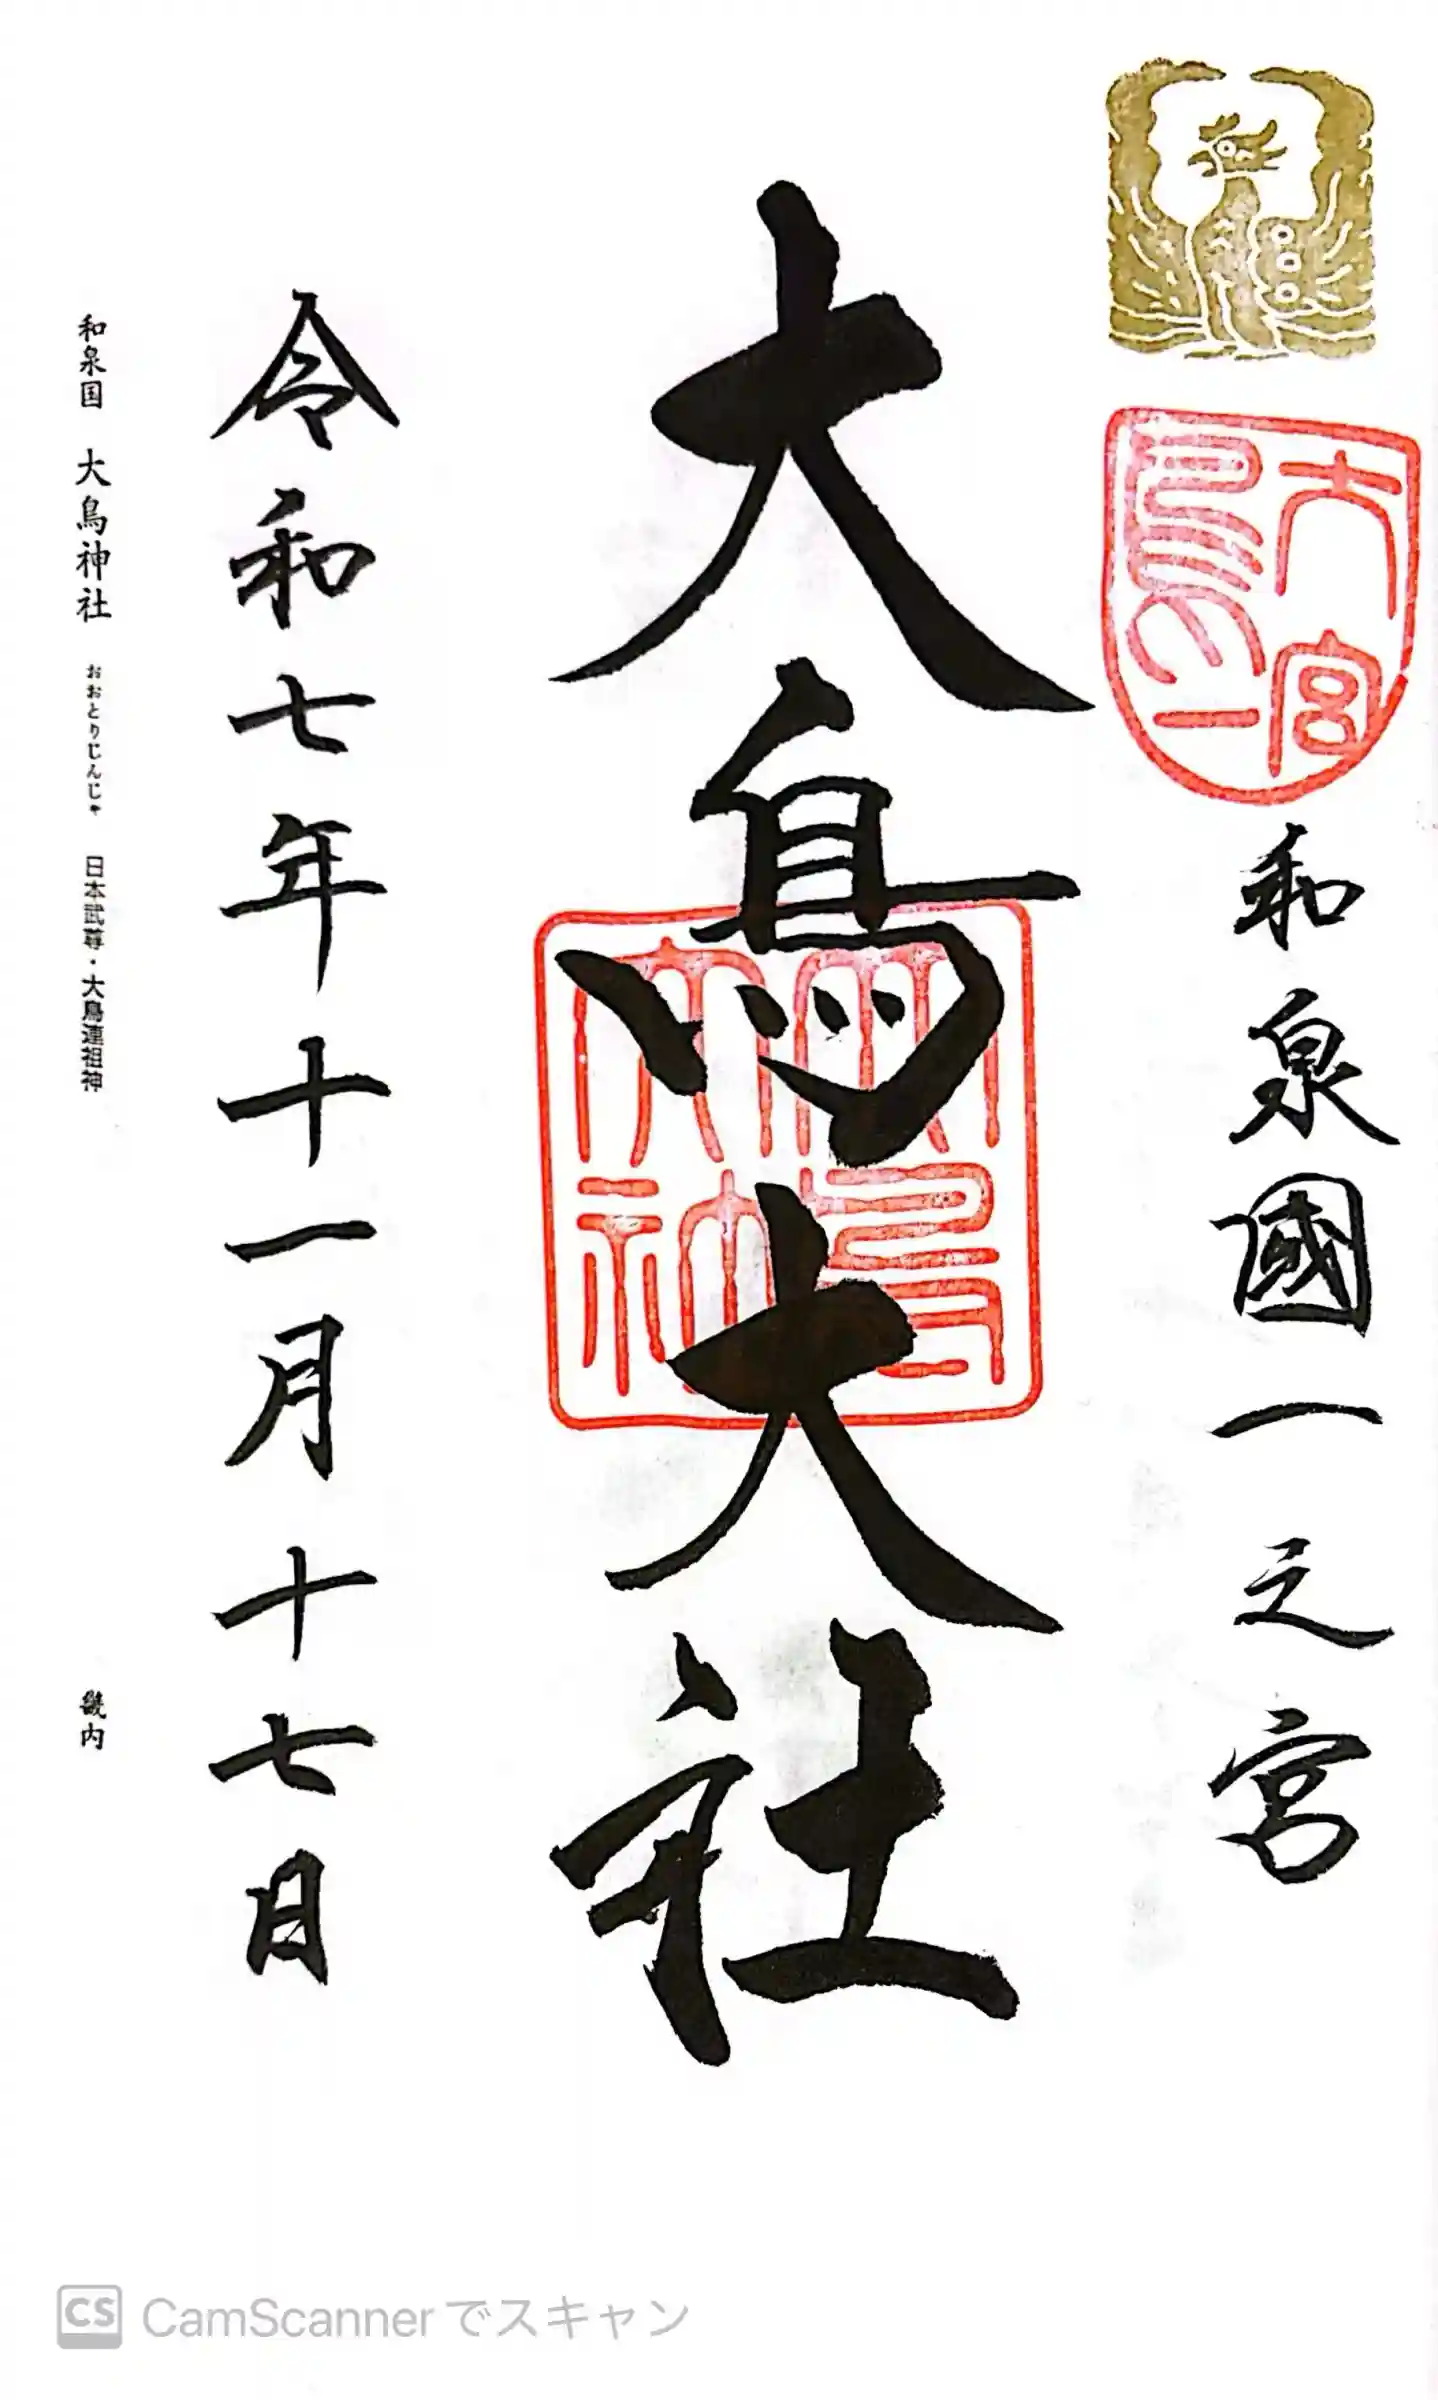 大鳥一宮
和泉國一之宮
大鳥大社
令和七年十一月十七日
和泉国 大鳥神社 おおとりじんじゃ 日本武尊・大鳥連祖神 畿内
CS CamScannerでスキャン